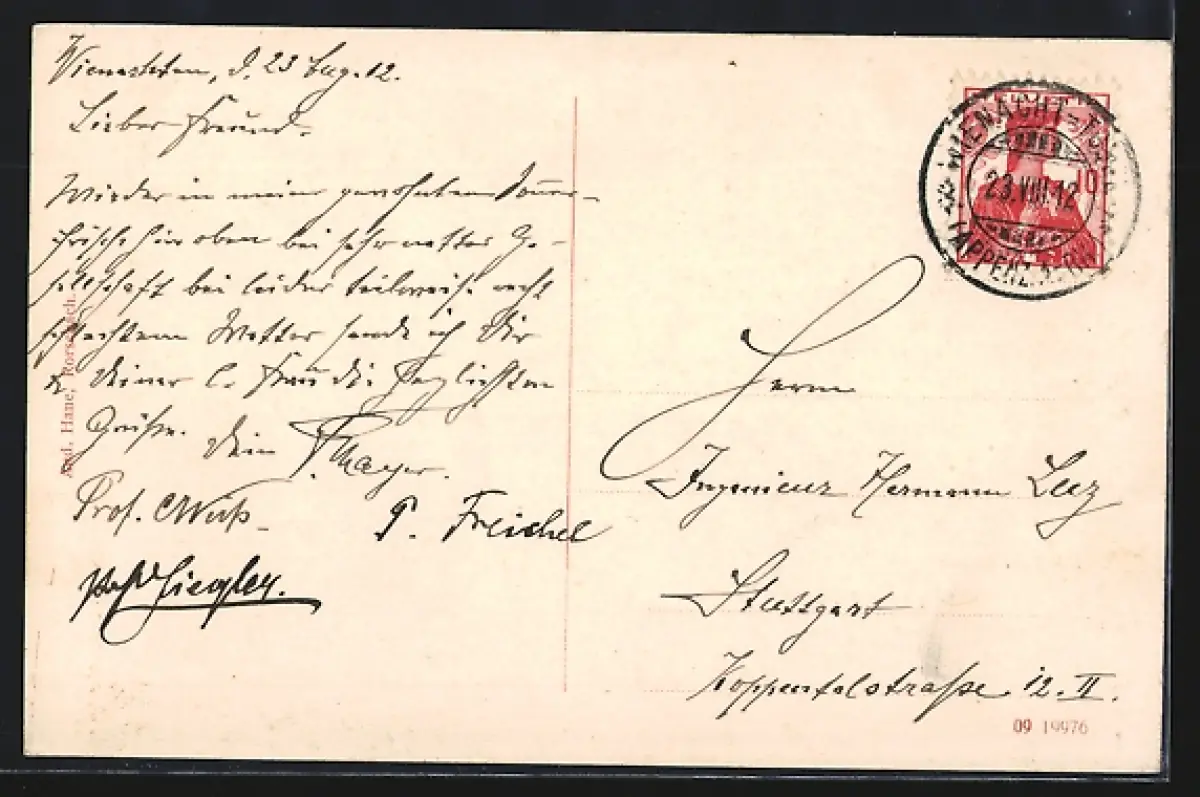 Wienachten, d. 23 Aug. 12.
Lieber Freund.
Wieder in meiner gewohnten Somer-
frische hier oben bei sehr netter Ge-
sellschaft bei leider teilweise recht
schlechtem Wetter sende ich Dir
& Deiner l. Frau die herzlichsten
Grüße. Dein F. Mayer.
Prof. Weiß
P. Freichel
Ziegler.
WIENACHT-
23.VIII.12
(APPENZ.
10
Herrn
Ingenieur Hermann Lutz
Stuttgart
Koppentalstraße 12. II.
09 19976
Hane, Rorschach.